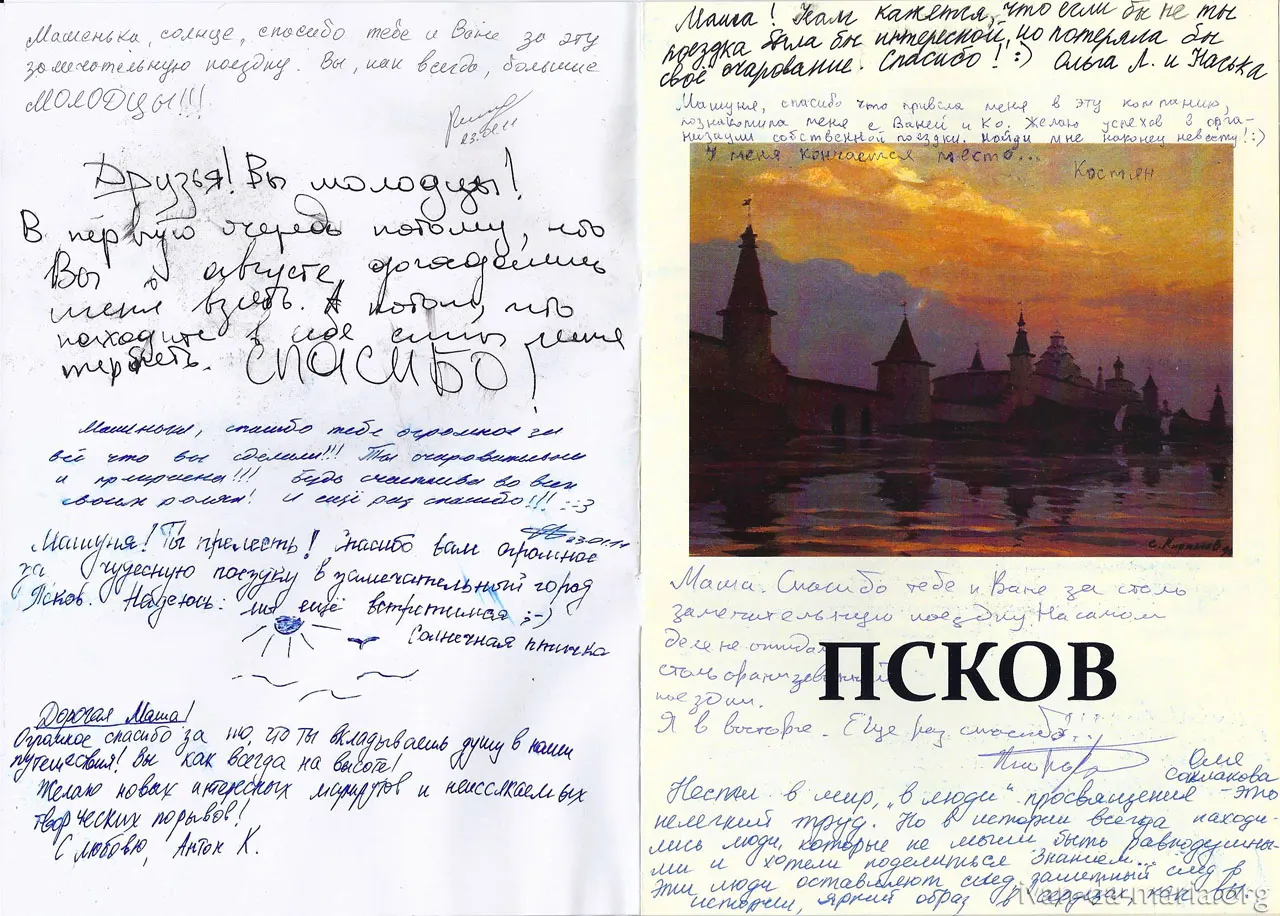 Машенька, солнце, спасибо тебе и Ване за эту
замечательную поездку. Вы, как всегда, большие
МОЛОДЦЫ!!!
Друзья! Вы молодцы!
В первую очередь потому, что
Вы в августе догадались
меня взять. А потом, что
находите в себе силы меня
терпеть. СПАСИБО!
Машенька, спасибо тебе огромное за
всё что вы сделали!!! Ты очаровательна
и прекрасна!!! Будь счастлива во всех
своих ролях! И ещё раз спасибо!!! :-3
23.01.11
Машуня! Ты прелесть! Спасибо вам огромное
за чудесную поездку в замечательный город
Псков. Надеюсь: мы ещё встретимся ;-)
Солнечная птичка
Дорогая Маша!
Огромное спасибо за то, что ты вкладываешь душу в наши
путешествия! Вы как всегда на высоте!
Желаю новых интересных маршрутов и неиссякаемых
творческих порывов!
С любовью, Антон К.
Маша! Нам кажется, что если бы не ты
поездка была бы интересной, но потеряла бы
своё очарование. Спасибо! :) Ольга Л. и Наська
Машуня, спасибо что привела меня в эту компанию,
познакомила меня с Ваней и Ко. Желаю успехов в орга-
низации собственной поездки. Найди мне наконец невесту! :)
У меня кончается место...
Костян
Маша. Спасибо тебе и Ване за столь
замечительную поездку. На самом
деле не ожидал
столь организованной
поездки.
Я в восторге. Еще раз спасибо!!!
ПСКОВ
Оля
Саклакова
Нести в мир, "в люди" просвящение - это
нелегкий труд. Но в истории всегда находи-
лись люди, которые не могли быть равнодушны-
ми и хотели поделиться знанием...
Эти люди оставляют след заметный след в
истории, яркий образ в сердцах, как вы.
maria.org